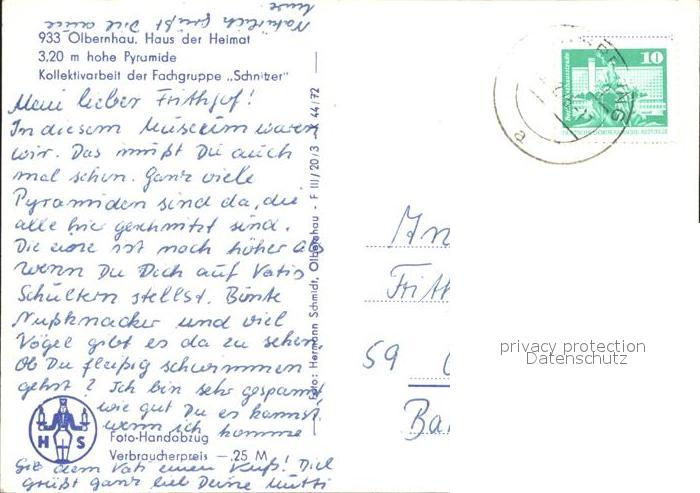 Natürlich grüßt Dich auch
933 Olbernhau, Haus der Heimat
3,20 m hohe Pyramide
Kollektivarbeit der Fachgruppe „Schnitzer"
Mein lieber Frithjof!
In diesem Museum waren
wir. Das mußt Du auch
mal sehen. Ganz viele
Pyramiden sind da, die
alle hier geschnitzt sind.
Die eine ist noch höher als
wenn Du Dich auf Vatis
Schultern stellst. Bunte
Nußknacker und viel
Vögel gibt es da zu sehen.
Ob Du fleißig schwimmen
gehst? Ich bin sehr gespannt
wie gut Du es kannst,
wenn ich komme
Gib dem Vati einen Kuß! Dich
grüßt ganz lieb Deine Mutti
H S
Foto-Handabzug
Verbraucherpreis —,25 M
Foto: Hermann Schmidt, Olbernhau - F III/20/3 A 44/72
10
DEUTSCHE DEMOKRATISCHE REPUBLIK
a
An
Frith
59
Ba
privacy protection
Datenschutz